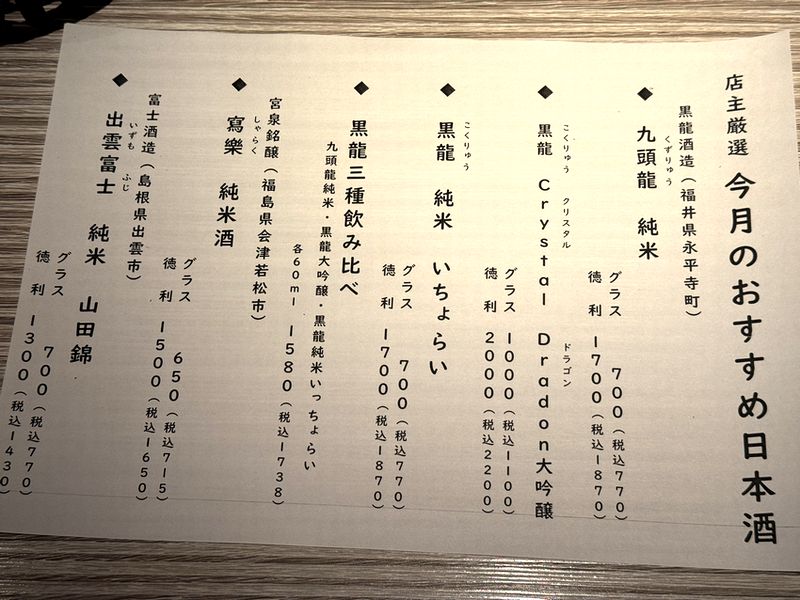 店主厳選 今月のおすすめ日本酒
黒龍酒造（福井県永平寺町）
くずりゅう
◆ 九頭龍 純米
グラス 700（税込770）
徳利 1700（税込1870）
こくりゅう クリスタル ドラゴン
◆ 黒龍 Crystal Dradon大吟醸
グラス 1000（税込1100）
徳利 2000（税込2200）
こくりゅう
◆ 黒龍 純米 いちょらい
グラス 700（税込770）
徳利 1700（税込1870）
◆ 黒龍三種飲み比べ
九頭龍純米・黒龍大吟醸・黒龍純米いっちょらい
各60ml 1580（税込1738）
宮泉銘醸（福島県会津若松市）
しゃらく
◆ 寫樂 純米酒
グラス 650（税込715）
徳利 1500（税込1650）
富士酒造（島根県出雲市）
いずも ふじ
◆ 出雲富士 純米 山田錦
グラス 700（税込770）
徳利 1300（税込1430）